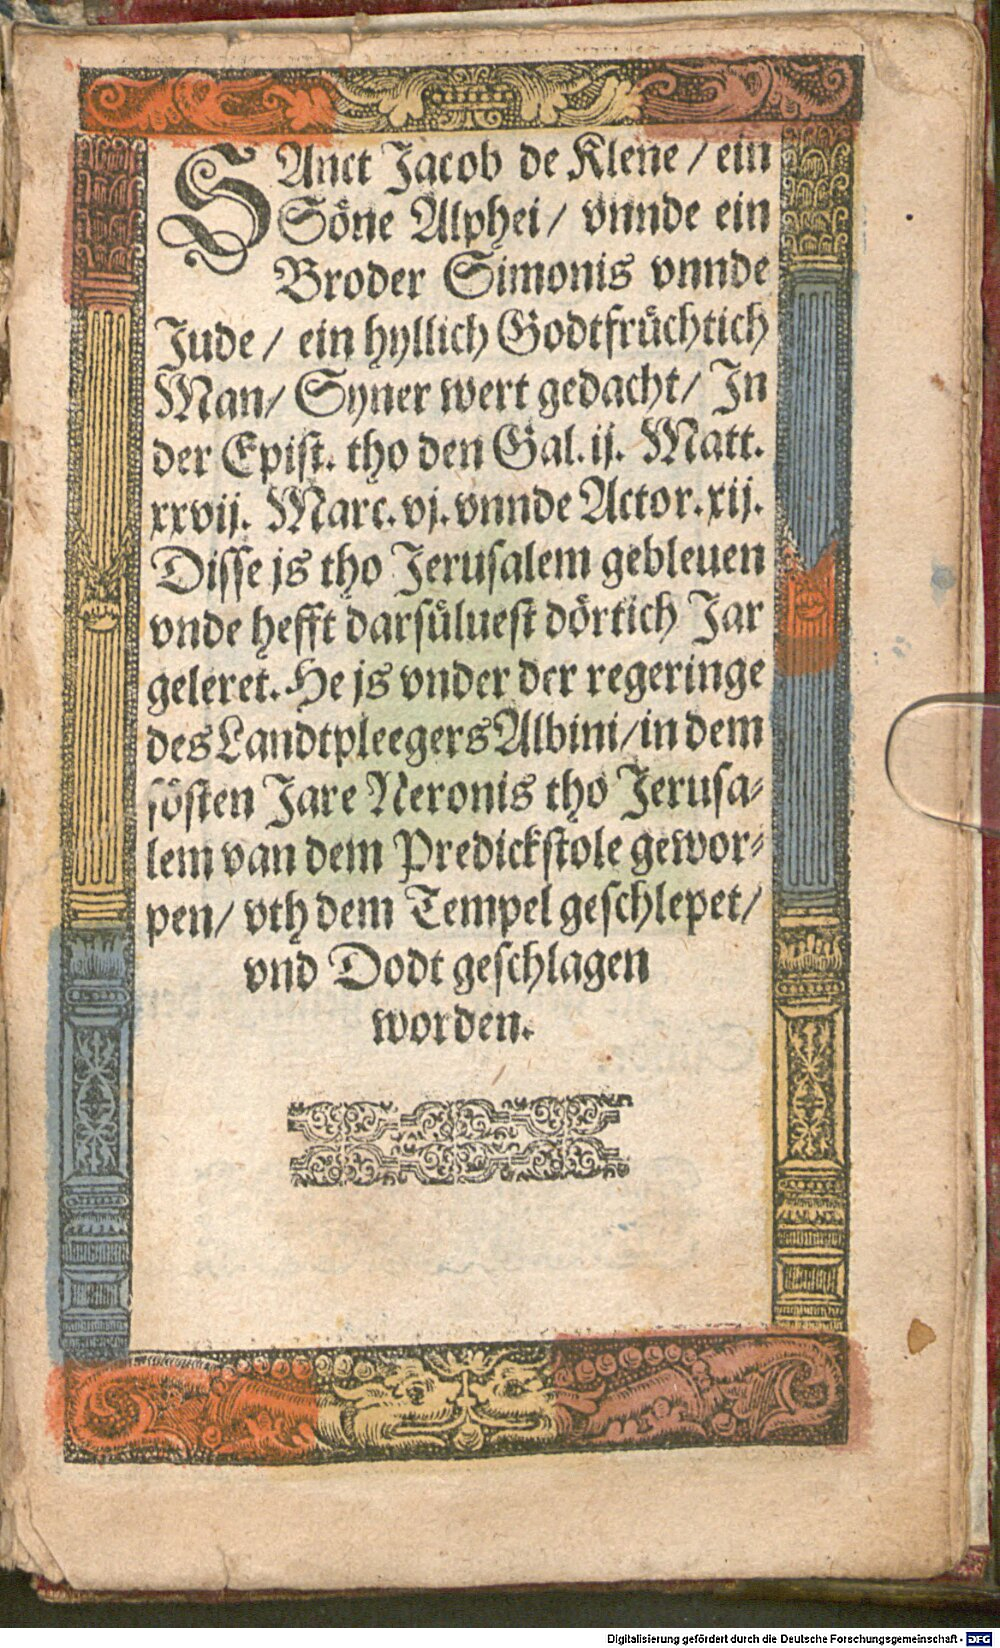 SAnct Jacob de Klene / ein
Söne Alphei / vnnde ein
Broder Simonis vnnde
Jude / ein hyllich Godtfrüchtich
Man / Syner wert gedacht / In
der Epist. tho den Gal. ij. Matt.
xxvij. Marc. vj. vnnde Actor. xij.
Disse js tho Jerusalem gebleuen
vnde hefft darsüluest dörtich Jar
geleret. He js vnder der regeringe
des Landtpleegers Albini / in dem
sösten Jare Neronis tho Jerusa-
lem van dem Predickstole gewor-
pen / vth dem Tempel geschlepet /
vnd Dodt geschlagen
worden.
Digitalisierung gefördert durch die Deutsche Forschungsgemeinschaft - DFG